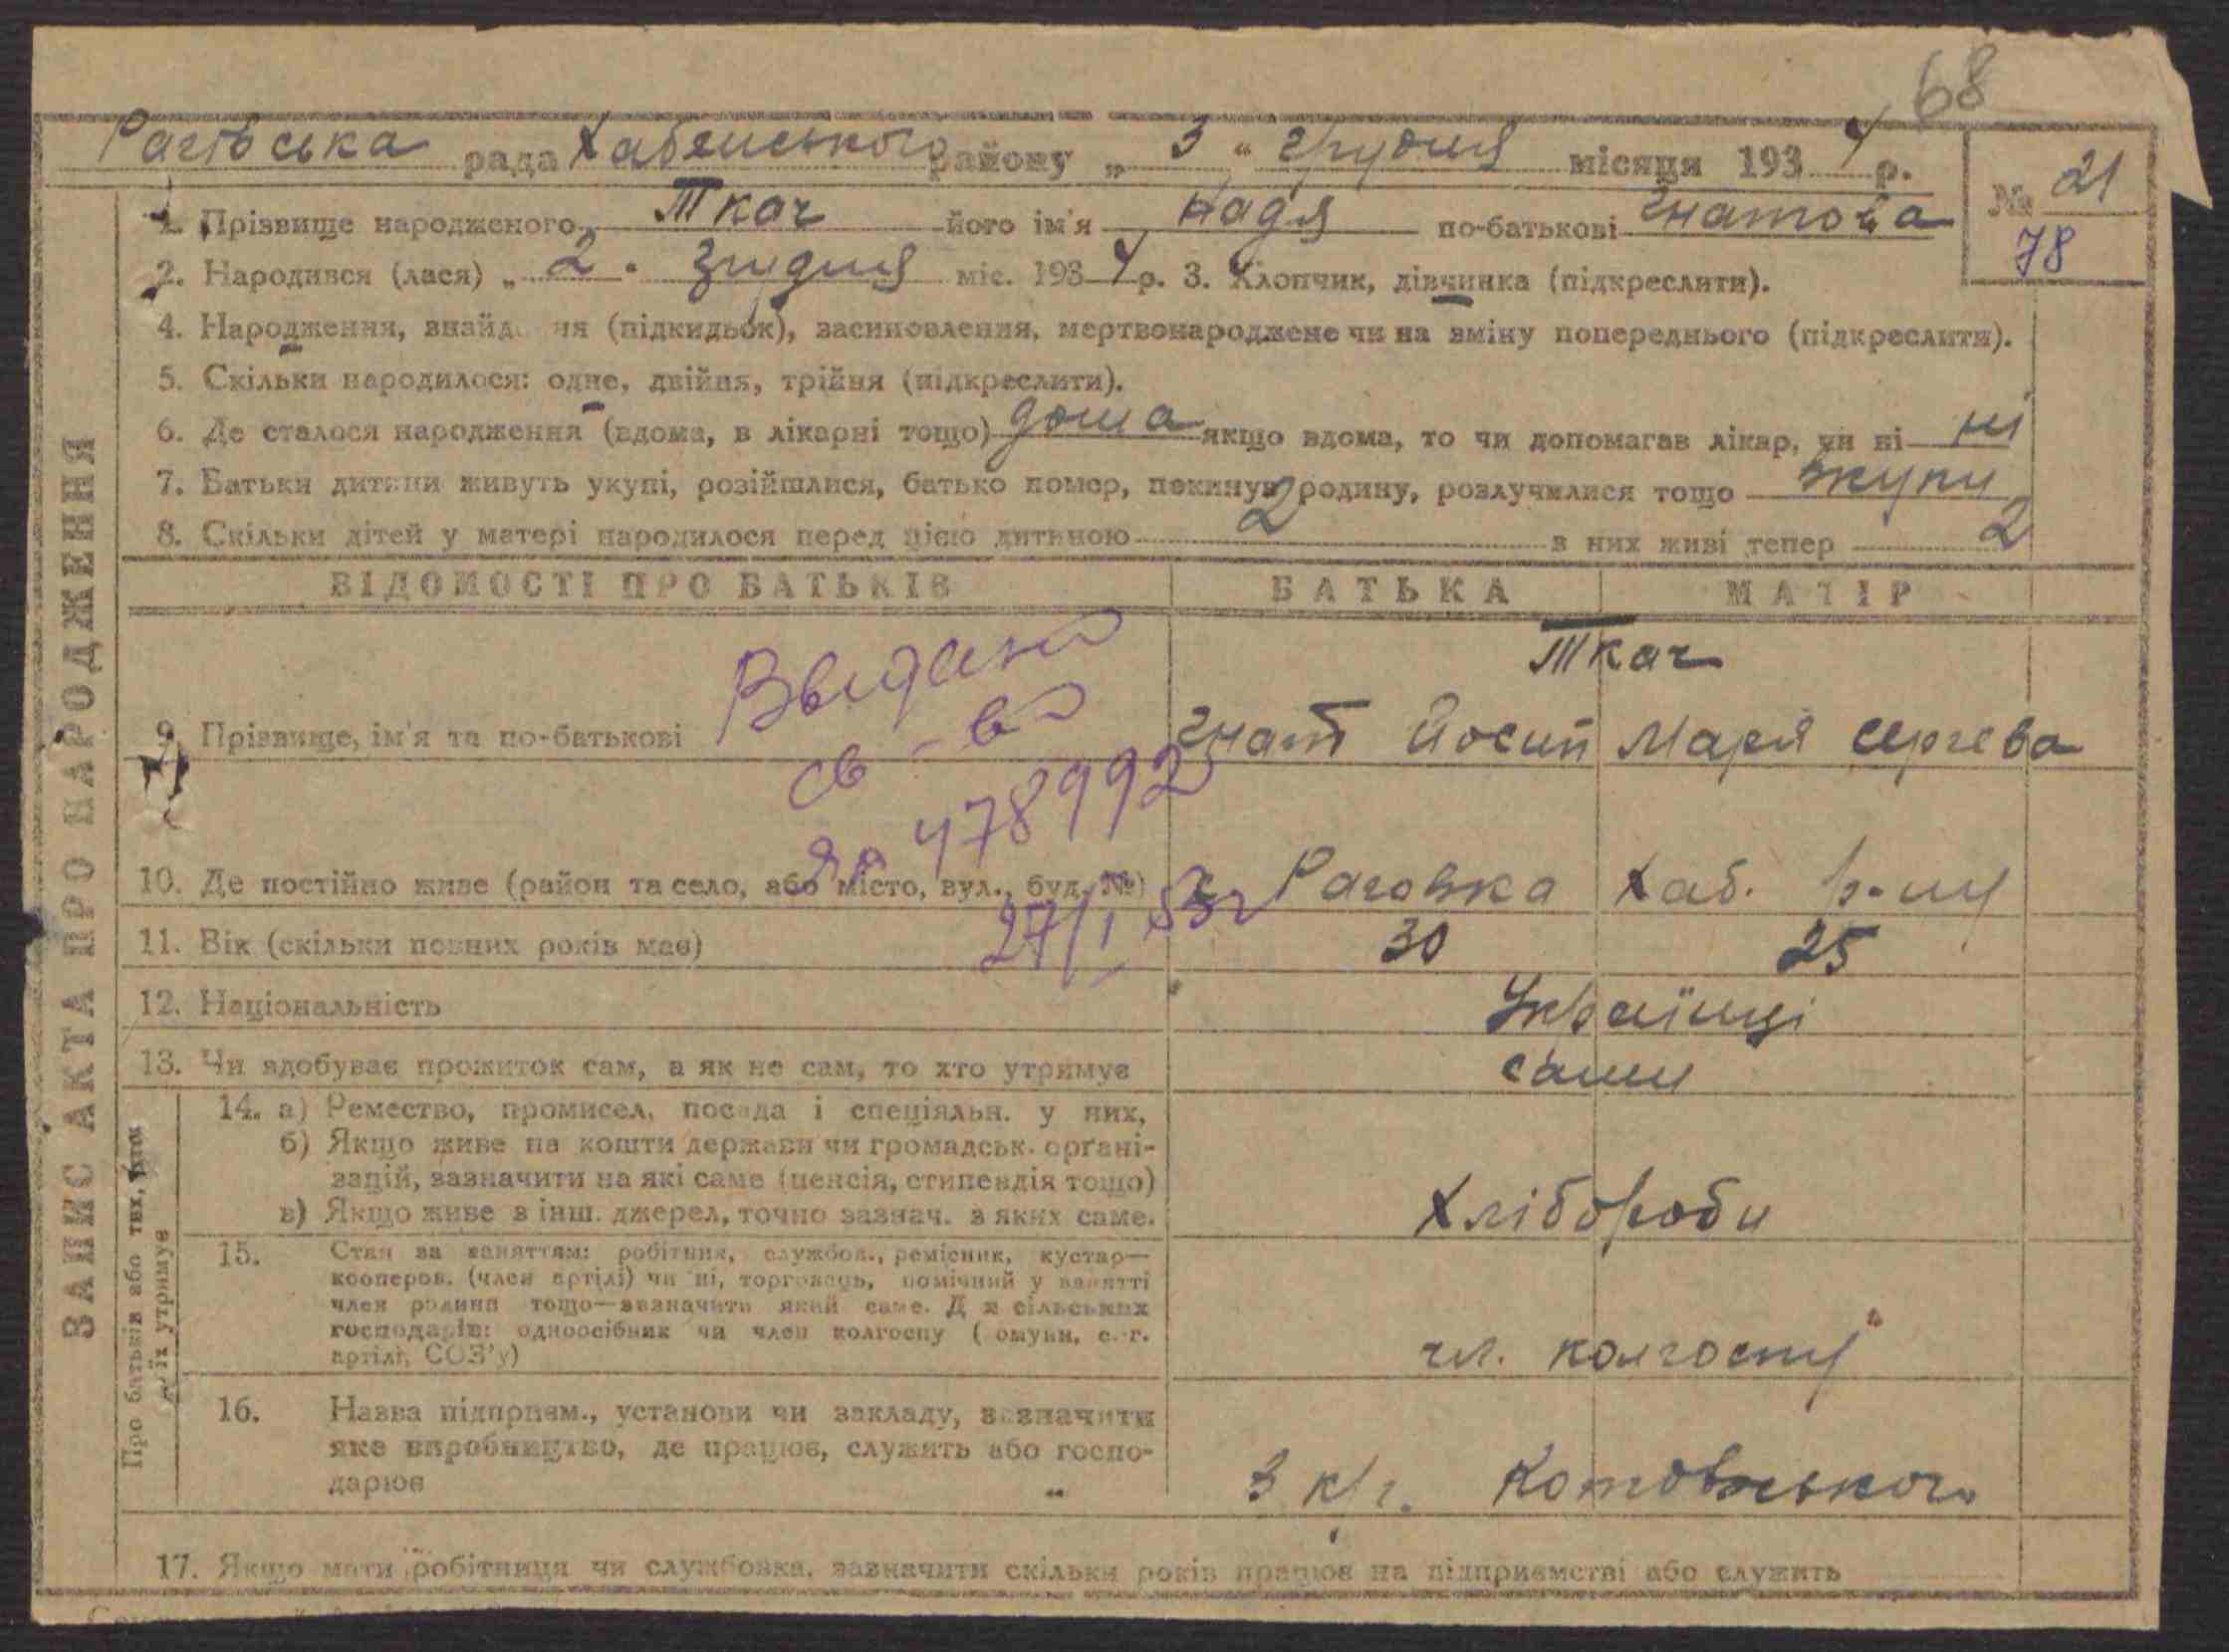 68
Рагівська рада Хабенського району „ 3 “ грудня місяця 193 4 р.
№ 21
78
1. Прізвище народженого Ткач його ім'я Надя по-батькові Гнатова
2. Народився (лася) „ 2 " грудня міс. 193 4 р. 3. Хлопчик, дівчинка (підкреслити).
4. Народження, знайд ня (підкидьок), засиновлення, мертвонароджене чи на зміну попереднього (підкреслити).
5. Скільки народилося: одне, двійня, трійня (підкреслити).
6. Де сталося народження (вдома, в лікарні тощо) дома якщо вдома, то чи допомагав лікар, чи ні ні
7. Батьки дитини живуть укупі, розійшлися, батько помер, покинув родину, розлучилися тощо вкупи
8. Скільки дітей у матері народилося перед цією дитиною 2 з них живі тепер 2
ЗАПИС АКТА ПРО НАРОДЖЕННЯ
ВІДОМОСТІ ПРО БАТЬКІВ БАТЬКА МАТІР
Ткач
9. Прізвище, ім'я та по-батькові Гнат Йосип Марія Сергева
Выдано
св-во
478992
27/I 53г
10. Де постійно живе (район та село, або місто, вул., буд. №) с. Раговка Хаб. р-ну
11. Вік (скільки повних років має) 30 25
12. Національність Українці
13. Чи здобуває прожиток сам, а як не сам, то хто утримує сами
Про батьків або тих, хто їх утримує
14. а) Ремество, промисел, посада і спеціяльн. у них,
б) Якщо живе на кошти держави чи громадськ. орґані-
зацій, зазначити на які саме (пенсія, стипендія тощо)
в) Якщо живе з інш. джерел, точно зазнач. з яких саме.
Хлібороби
15. Стан за заняттям: робітник, службов., ремісник, кустар—
кооперов. (член артілі) чи ні, торговець, помічний у занятті
член родини тощо—зазначити який саме. Д я сільських
господарів: одноосібник чи член колгоспу ( омуни, с.-г.
артілі, СОЗ'у)
чл. колгоспу
16. Назва підприєм., установи чи закладу, зазначити
яке виробництво, де працює, служить або госпо-
дарює
З к/г. Котовського
17. Якщо мати робітниця чи службовка, зазначити скільки років працює на підприємстві або служить